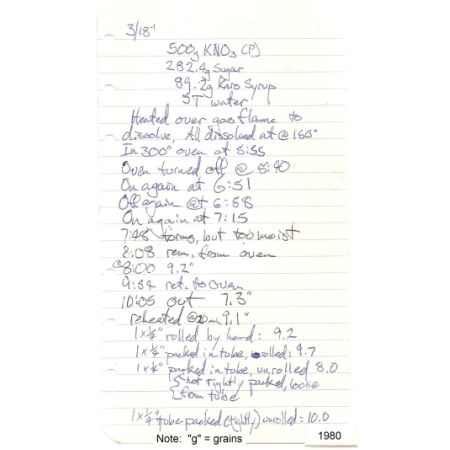 3/18
500g KNO3 (P)
282.4g Sugar
89.2g Karo Syrup
5T water
Heated over gas flame to
dissolve. All dissolved at @ 160°
In 300° oven at 5:55
Oven turned off @ 6:40
On again at 6:51
Off again @ 6:58
On again at 7:15
7:48 forms, but too moist
8:08 rem. from oven
@8:00 9.2"
9:54 ret. to oven
10:05 out 7.3"
reheated @20m 9.1"
1x¼" rolled by hand: 9.2
1x¼" packed in tube, unrolled: 9.7
1x¼" packed in tube, unrolled 8.0
not tightly packed, loose
from tube
1x¼" tube packed (tightly) unrolled: 10.0
Note: "g" = grains
1980